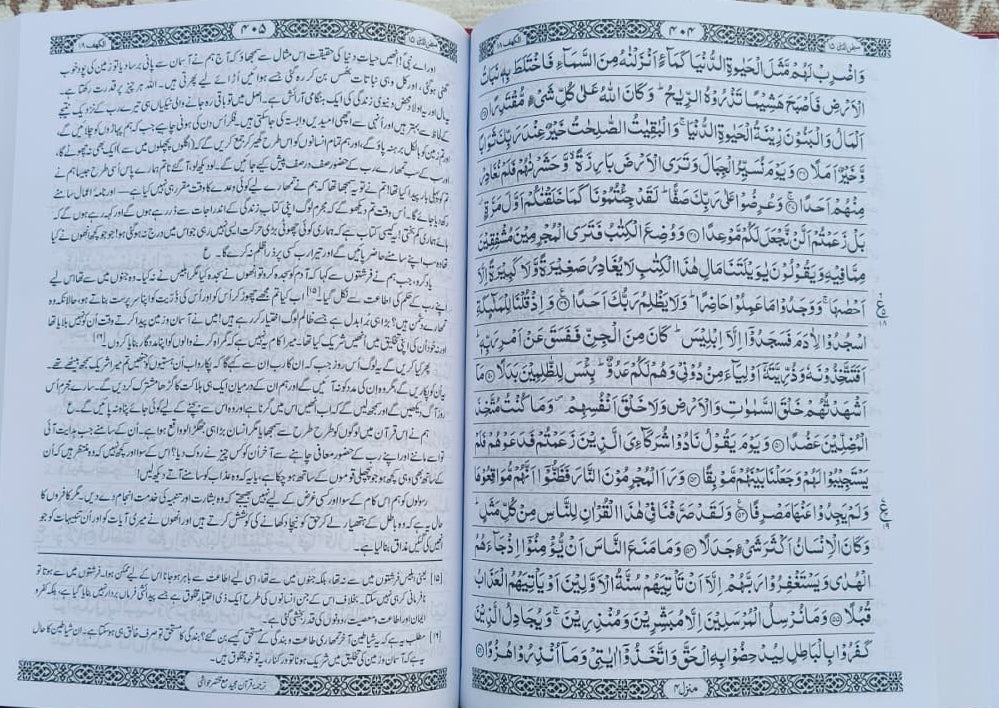 سبحن الذی ۱۵
۴۰۴
الكهف ۱۸
وَاضْرِبْ لَهُمْ مَّثَلَ الْحَيٰوةِ الدُّنْيَا كَمَآءٍ اَنْزَلْنٰهُ مِنَ السَّمَآءِ فَاخْتَلَطَ بِهٖ نَبَاتُ
الْاَرْضِ فَاَصْبَحَ هَشِيْمًا تَذْرُوْهُ الرِّيٰحُ ؕ وَكَانَ اللّٰهُ عَلٰى كُلِّ شَىْءٍ مُّقْتَدِرًا ﴿۴۵﴾
اَلْمَالُ وَالْبَنُوْنَ زِيْنَةُ الْحَيٰوةِ الدُّنْيَا ۚ وَالْبٰقِيٰتُ الصّٰلِحٰتُ خَيْرٌ عِنْدَ رَبِّكَ ثَوَابًا
وَّخَيْرٌ اَمَلًا ﴿۴۶﴾ وَيَوْمَ نُسَيِّرُ الْجِبَالَ وَتَرَى الْاَرْضَ بَارِزَةً ۙ وَّحَشَرْنٰهُمْ فَلَمْ نُغَادِرْ
مِنْهُمْ اَحَدًا ﴿۴۷﴾ وَعُرِضُوْا عَلٰى رَبِّكَ صَفًّا ؕ لَقَدْ جِئْتُمُوْنَا كَمَا خَلَقْنٰكُمْ اَوَّلَ مَرَّةٍۭ ؗ
بَلْ زَعَمْتُمْ اَلَّنْ نَّجْعَلَ لَكُمْ مَّوْعِدًا ﴿۴۸﴾ وَوُضِعَ الْكِتٰبُ فَتَرَى الْمُجْرِمِيْنَ مُشْفِقِيْنَ
مِمَّا فِيْهِ وَيَقُوْلُوْنَ يٰوَيْلَتَنَا مَالِ هٰذَا الْكِتٰبِ لَا يُغَادِرُ صَغِيْرَةً وَّلَا كَبِيْرَةً اِلَّاۤ
اَحْصٰىهَا ۚ وَوَجَدُوْا مَا عَمِلُوْا حَاضِرًا ؕ وَلَا يَظْلِمُ رَبُّكَ اَحَدًا ﴿۴۹﴾ وَاِذْ قُلْنَا لِلْمَلٰٓئِكَةِ
اسْجُدُوْا لِاٰدَمَ فَسَجَدُوْۤا اِلَّاۤ اِبْلِيْسَ ؕ كَانَ مِنَ الْجِنِّ فَفَسَقَ عَنْ اَمْرِ رَبِّهٖ ؕ
اَفَتَتَّخِذُوْنَهٗ وَذُرِّيَّتَهٗۤ اَوْلِيَآءَ مِنْ دُوْنِىْ وَهُمْ لَكُمْ عَدُوٌّ ؕ بِئْسَ لِلظّٰلِمِيْنَ بَدَلًا ﴿۵۰﴾ مَاۤ
اَشْهَدْتُّهُمْ خَلْقَ السَّمٰوٰتِ وَالْاَرْضِ وَلَا خَلْقَ اَنْفُسِهِمْ ۪ وَمَا كُنْتُ مُتَّخِذَ
الْمُضِلِّيْنَ عَضُدًا ﴿۵۱﴾ وَيَوْمَ يَقُوْلُ نَادُوْا شُرَكَآءِىَ الَّذِيْنَ زَعَمْتُمْ فَدَعَوْهُمْ فَلَمْ
يَسْتَجِيْبُوْا لَهُمْ وَجَعَلْنَا بَيْنَهُمْ مَّوْبِقًا ﴿۵۲﴾ وَرَاَ الْمُجْرِمُوْنَ النَّارَ فَظَنُّوْۤا اَنَّهُمْ مُّوَاقِعُوْهَا
وَلَمْ يَجِدُوْا عَنْهَا مَصْرِفًا ﴿۵۳﴾ وَلَقَدْ صَرَّفْنَا فِىْ هٰذَا الْقُرْاٰنِ لِلنَّاسِ مِنْ كُلِّ مَثَلٍ ؕ
وَكَانَ الْاِنْسَانُ اَكْثَرَ شَىْءٍ جَدَلًا ﴿۵۴﴾ وَمَا مَنَعَ النَّاسَ اَنْ يُّؤْمِنُوْۤا اِذْ جَآءَهُمُ
الْهُدٰى وَيَسْتَغْفِرُوْا رَبَّهُمْ اِلَّاۤ اَنْ تَاْتِيَهُمْ سُنَّةُ الْاَوَّلِيْنَ اَوْ يَاْتِيَهُمُ الْعَذَابُ
قُبُلًا ﴿۵۵﴾ وَمَا نُرْسِلُ الْمُرْسَلِيْنَ اِلَّا مُبَشِّرِيْنَ وَمُنْذِرِيْنَ ۚ وَيُجَادِلُ الَّذِيْنَ
كَفَرُوْا بِالْبَاطِلِ لِيُدْحِضُوْا بِهِ الْحَقَّ وَاتَّخَذُوْۤا اٰيٰتِىْ وَمَاۤ اُنْذِرُوْا هُزُوًا ﴿۵۶﴾
منزل ۴
سبحن الذی ۱۵
۴۰۵
الكهف ۱۸
اور اے نبیؐ! انھیں حیات دنیا کی حقیقت اس مثال سے سمجھاؤ کہ آج ہم نے آسمان سے پانی برسا دیا تو زمین کی پود خوب
گھنی ہو گئی، اور کل وہی نباتات بُھس بن کر رہ گئی جسے ہوائیں اُڑائے لیے پھرتی ہیں۔ اللہ ہر چیز پر قدرت رکھتا ہے۔
یہ مال اور یہ اولاد محض دنیوی زندگی کی ایک ہنگامی آرائش ہے۔ اصل میں تو باقی رہ جانے والی نیکیاں ہی تیرے رب کے نزدیک نتیجے
کے لحاظ سے بہتر ہیں اور اُنھی سے اچھی اُمیدیں وابستہ کی جا سکتی ہیں۔ فکر اُس دن کی ہونی چاہیے جب کہ ہم پہاڑوں کو چلائیں گے،
اور تم زمین کو بالکل برہنہ پاؤ گے، اور ہم تمام انسانوں کو اس طرح گھیر کر جمع کریں گے کہ (اگلوں پچھلوں میں سے) ایک بھی نہ چھوٹے گا،
اور سب کے سب تمھارے رب کے حضور صف در صف پیش کیے جائیں گے۔ لو دیکھ لو، آ گئے نا تم ہمارے پاس اُسی طرح جیسا ہم نے
تم کو پہلی بار پیدا کیا تھا! تم نے تو یہ سمجھا تھا کہ ہم نے تمھارے لیے کوئی وعدے کا وقت مقرر ہی نہیں کیا ہے — اور نامۂ اعمال سامنے
رکھ دیا جائے گا۔ اُس وقت تم دیکھو گے کہ مجرم لوگ اپنی کتابِ زندگی کے اندراجات سے ڈر رہے ہوں گے اور کہہ رہے ہوں گے کہ
ہائے ہماری کم بختی! یہ کیسی کتاب ہے کہ ہماری کوئی چھوٹی بڑی حرکت ایسی نہیں رہی جو اس میں درج نہ ہو گئی ہو! جو جو کچھ انھوں نے کیا
تھا وہ سب اپنے سامنے حاضر پائیں گے اور تیرا رب کسی پر ذرا ظلم نہ کرے گا۔ ع
یاد کرو، جب ہم نے فرشتوں سے کہا کہ آدم کو سجدہ کرو تو انھوں نے سجدہ کیا مگر ابلیس نے نہ کیا۔ وہ جنوں میں سے تھا اس لیے
اپنے رب کے حکم کی اطاعت سے نکل گیا۔ [۱۵] اب کیا تم مجھے چھوڑ کر اُس کو اور اُس کی ذُرّیت کو اپنا سرپرست بناتے ہو، حالانکہ وہ
تمھارے دشمن ہیں؟ بڑا ہی بُرا بدل ہے جسے ظالم لوگ اختیار کر رہے ہیں! میں نے آسمان و زمین پیدا کرتے وقت اُن کو نہیں بلایا تھا
اور نہ خود اُن کی اپنی تخلیق میں انھیں شریک کیا تھا۔ میرا کام یہ نہیں ہے کہ گمراہ کرنے والوں کو اپنا مددگار بنایا کروں۔ [۱۶]
پھر کیا کریں گے یہ لوگ اُس روز جب کہ ان کا رب ان سے کہے گا کہ پکارو اب اُن ہستیوں کو جنھیں تم میرا شریک سمجھ بیٹھے تھے۔
یہ اُن کو پکاریں گے، مگر وہ ان کی مدد کو نہ آئیں گے اور ہم ان کے درمیان ایک ہی ہلاکت کا گڑھا مشترک کر دیں گے۔ سارے مجرم اُس
روز آگ دیکھیں گے اور سمجھ لیں گے کہ اب انھیں اس میں گرنا ہے اور وہ اس سے بچنے کے لیے کوئی جائے پناہ نہ پائیں گے۔ ع
ہم نے اس قرآن میں لوگوں کو طرح طرح سے سمجھایا مگر انسان بڑا ہی جھگڑالو واقع ہوا ہے۔ اُن کے سامنے جب ہدایت آئی
تو اسے ماننے اور اپنے رب کے حضور معافی چاہنے سے آخر اُن کو کس چیز نے روک دیا؟ اس کے سوا اور کچھ نہیں کہ وہ منتظر ہیں کہ اُن
کے ساتھ بھی وہی کچھ ہو جو پچھلی قوموں کے ساتھ ہو چکا ہے، یا یہ کہ وہ عذاب کو سامنے آتے دیکھ لیں!
رسولوں کو ہم اس کام کے سوا اور کسی غرض کے لیے نہیں بھیجتے کہ وہ بشارت اور تنبیہ کی خدمت انجام دے دیں۔ مگر کافروں کا
حال یہ ہے کہ وہ باطل کے ہتھیار لے کر حق کو نیچا دکھانے کی کوشش کرتے ہیں اور انھوں نے میری آیات کو اور اُن تنبیہات کو جو
انھیں کی گئیں مذاق بنا لیا ہے۔
[۱۵] یعنی ابلیس فرشتوں میں سے نہ تھا، بلکہ جنوں میں سے تھا، اسی لیے اطاعت سے باہر ہو جانا اس کے لیے ممکن ہوا۔ فرشتوں میں سے ہوتا تو
نافرمانی کر ہی نہیں سکتا۔ بخلاف اس کے جن انسانوں کی طرح ایک ذی اختیار مخلوق ہے جسے پیدائشی فرماں بردار نہیں بنایا گیا ہے، بلکہ کفر و
ایمان اور اطاعت و معصیت، دونوں کی قدرت بخشی گئی ہے۔
[۱۶] مطلب یہ ہے کہ یہ شیاطین آخر تمھاری طاعت و بندگی کے مستحق کیسے بن گئے؟ بندگی کا مستحق تو صرف خالق ہی ہو سکتا ہے۔ ان شیاطین کا حال
یہ ہے کہ آسمان و زمین کی تخلیق میں شریک ہونا تو درکنار، یہ تو خود مخلوق ہیں۔
ترجمۂ قرآن مجید مع مختصر حواشی